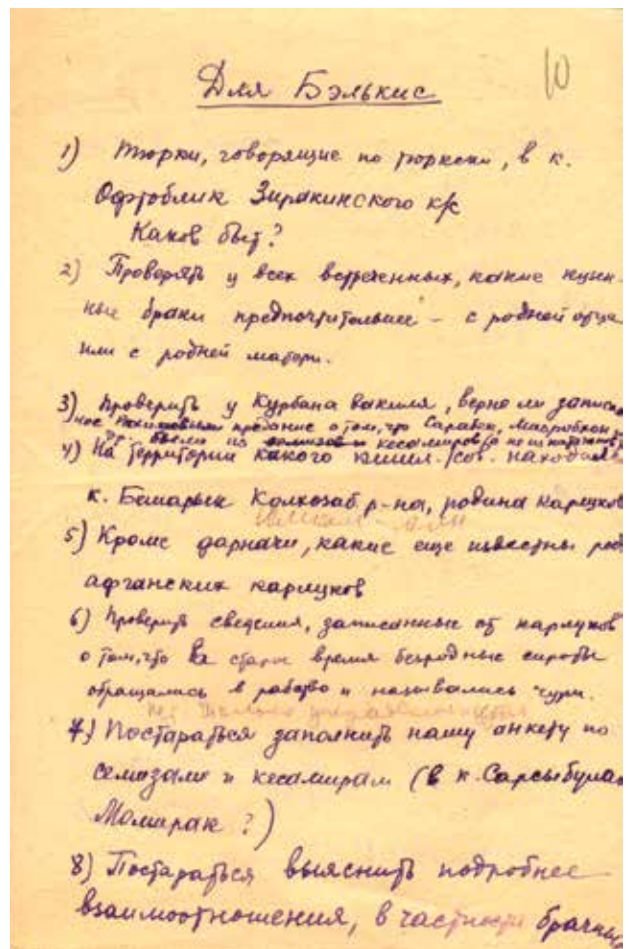 10
Для Бэлькис
1) Тюрки, говорящие по тюркски, в к.
Офтоблик Зиракинского к/с
Каков быт?
2) Проверять у всех встреченных, какие кузен-
ные браки предпочтительнее – с родней отца
или с родней матери.
3) Проверить у Курбана вакиля, верно ли записан
ное предание о том, что Сарабог,
были из кесамиров (а не из
4) На территории какого кишл./сов. находился
к. Бешарык Колхозаб. р-на, родина карлуков
5) Кроме дарначи, какие еще известны род
афганских карлуков
6) Проверить сведения, записанные от карлуков
о том, что в старое время безродные сироты
обращались в рабство и назывались чури.
7) Постараться заполнить нашу анкету по
семизам и кесамирам (в к. Сарсыбулак
Момирак ?)
8) Постараться выяснить подробнее
взаимоотношения, в частности брачные